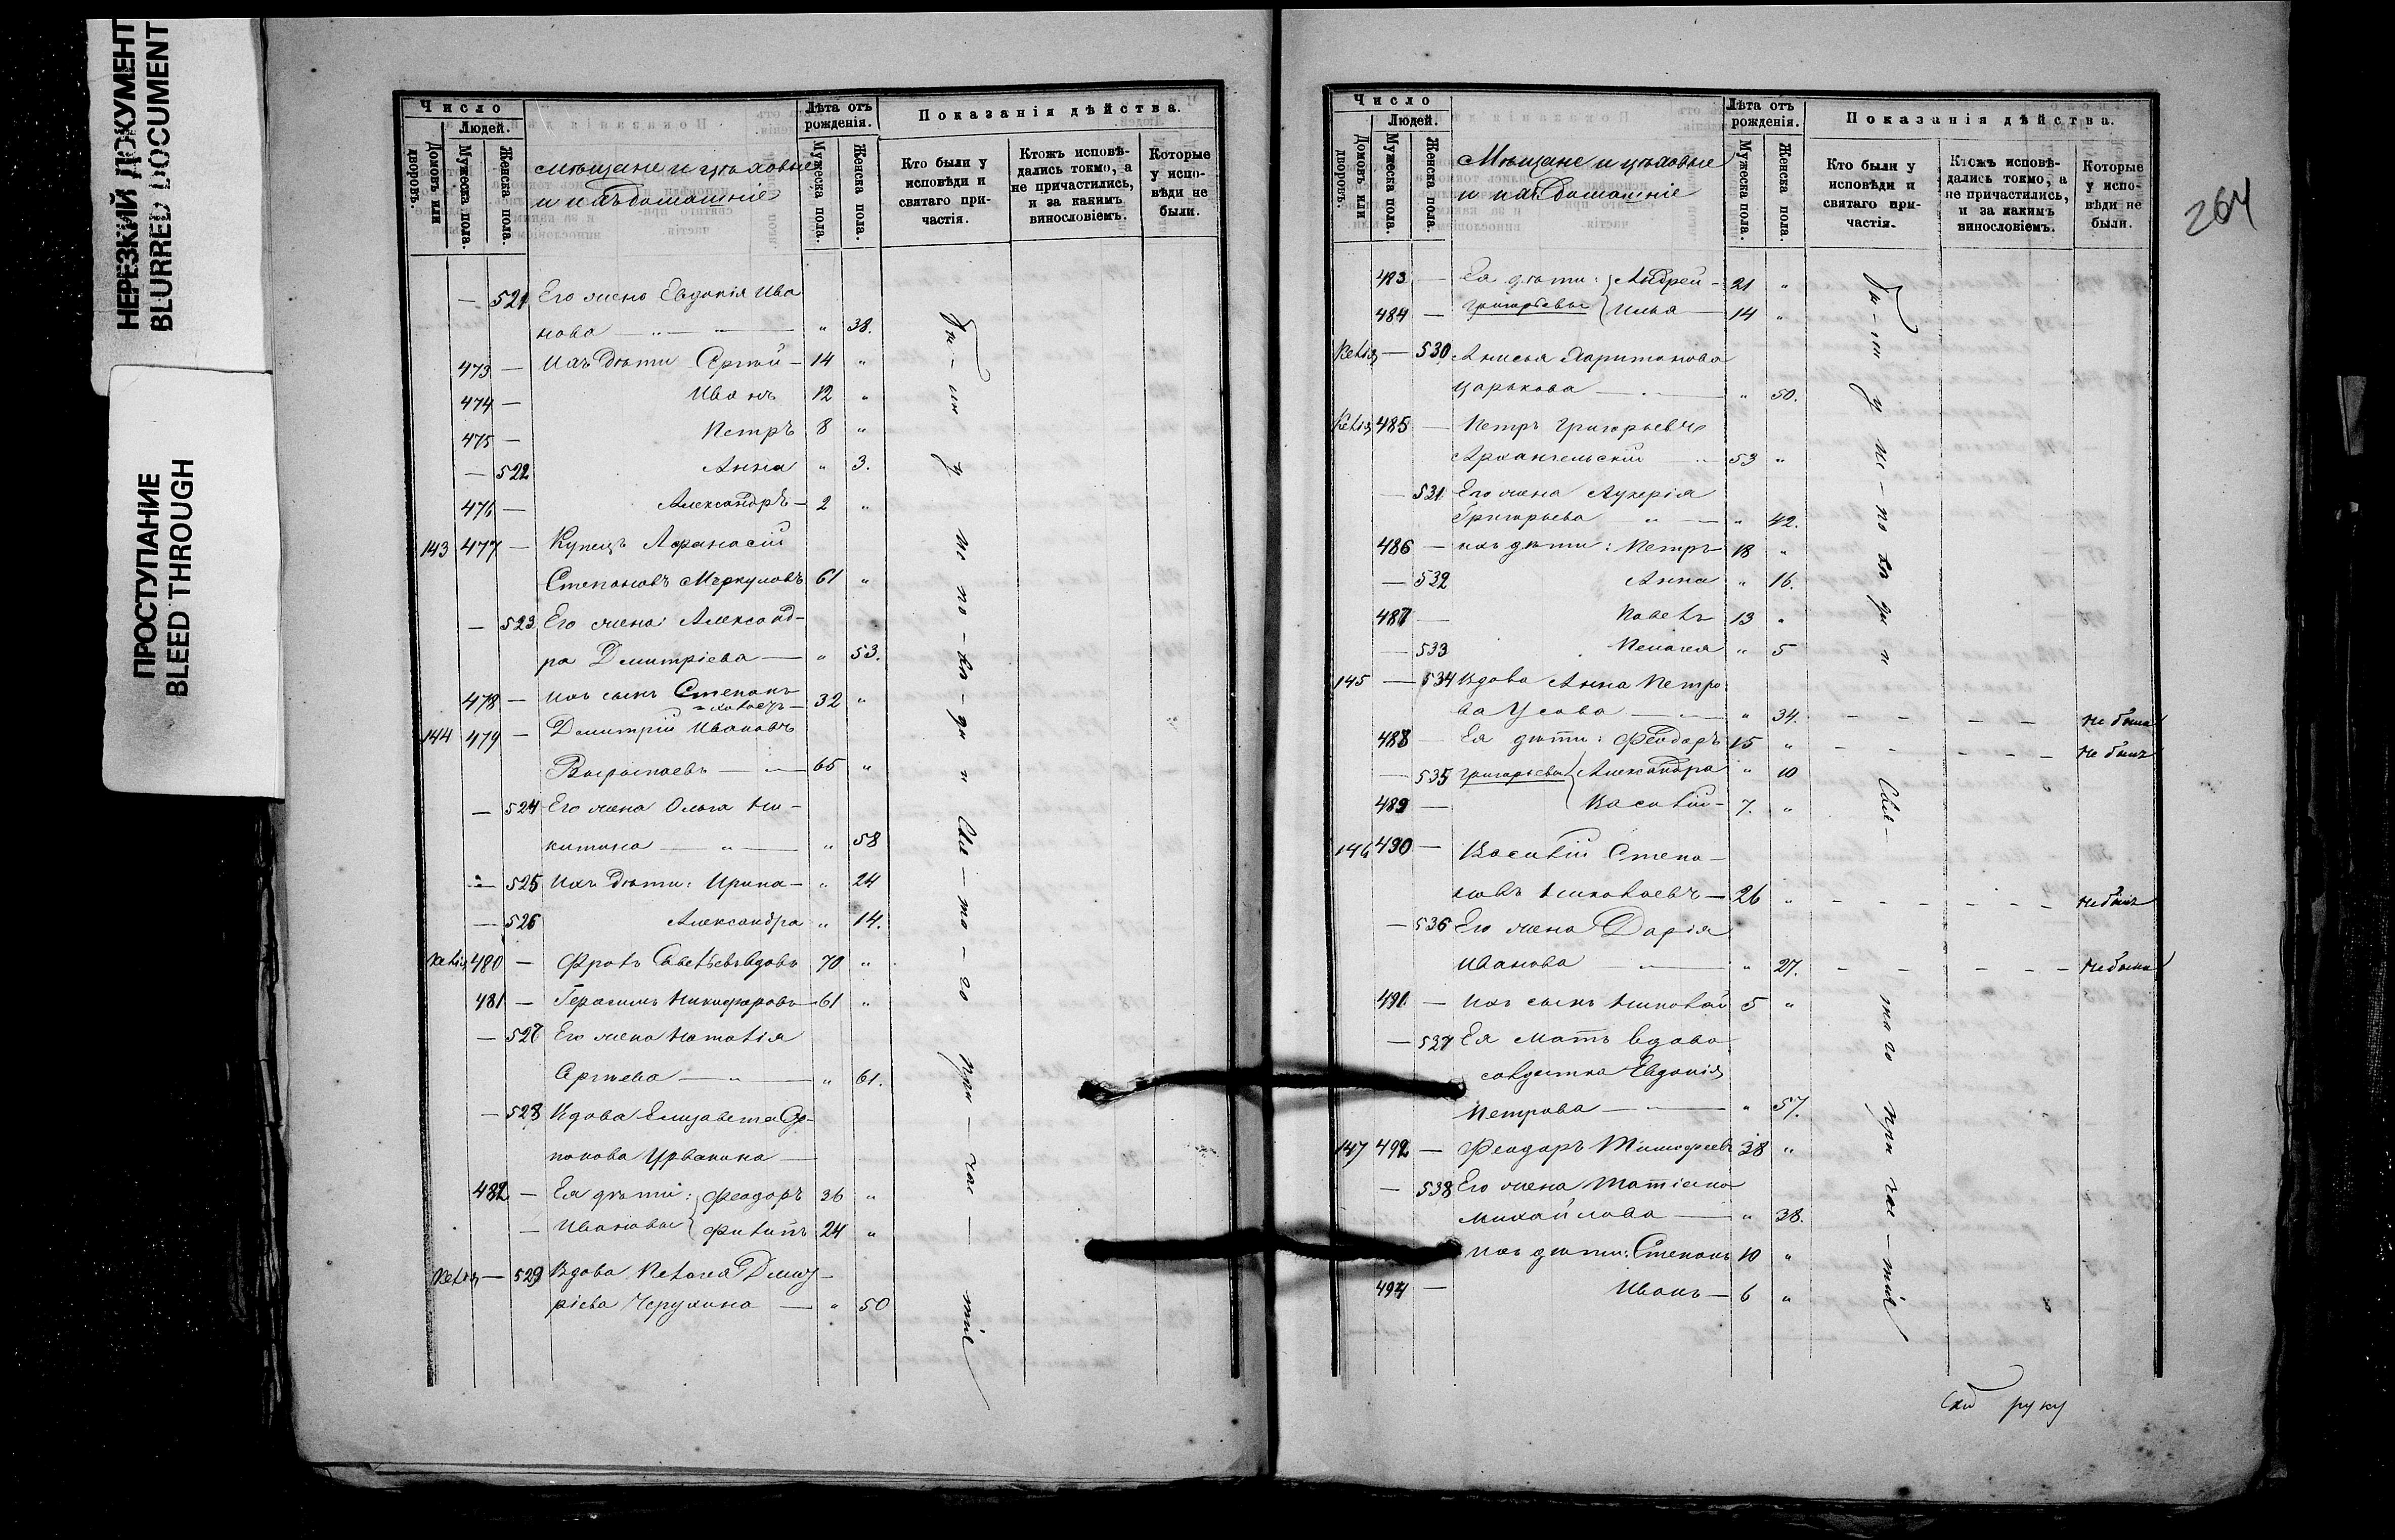 НЕРЕЗКИЙ ДОКУМЕНТ
BLURRED DOCUMENT
ПРОСТУПАНИЕ
BLEED THROUGH
Число
Людей.
Домовъ или дворовъ.
Мужеска пола.
Женска пола.
мѣщане и цѣховые
и ихъ домашніе
Лѣта отъ рожденія.
Мужеска пола.
Женска пола.
Показанія дѣйства.
Кто были у исповѣди и святаго причастія.
Ктожъ исповѣдались токмо, а не причастились, и за какимъ винословіемъ.
Которые у исповѣди не были.
— 521 Его жена Евдокія Ива
нова — „ — „ 38.
473 — Ихъ дѣти Сергѣй — 14 „
474 — Иванъ 12 „
475 — Петръ 8 „
— 522 Анна „ 3.
476 — Александръ — 2 „
143 477 — Купецъ Афанасій
Степановъ Меркуловъ 61 „
— 523 Его жена: Александ-
ра Дмитріева — „ 53.
478 — Ихъ сынъ Степанъ 32 „
144 479 — Дмитрій Ивановъ
65 „
— 524 Его жена Ольга Ни-
китина — „ — „ 58
— 525 Ихъ дѣти: Ирина — „ 24
— 526 Александра „ 14.
480 — Фролъ 70 „
481 — Герасимъ Никифоровъ — 61 „
— 527 Его жена Наталія
Сергѣева — „ — „ 61.
— 528 Вдова Елизавета
482 — Ея дѣти: Феодоръ 36 „
— Ивановы Филипъ 24 „
— 529 Вдова Пелагея Дмит-
ріева — „ 50
Были у исповѣди и Святаго причастія
Число
Людей.
Домовъ или дворовъ.
Мужеска пола.
Женска пола.
Мѣщане и цѣховые
и ихъ домашніе
Лѣта отъ рожденія.
Мужеска пола.
Женска пола.
Показанія дѣйства.
Кто были у исповѣди и святаго причастія.
Ктожъ исповѣдались токмо, а не причастились, и за какимъ винословіемъ.
Которые у исповѣди не были.
264
483 — Ея дѣти: Андрей — 21 „
484 — Григорьевы Илья — 14 „
— 530 Анисья Харитонова
Царькова — „ 50.
485 — Петръ Григорьевъ
Архангельскій — 53 „
— 531 Его жена Лукерія
Григорьева „ — „ 42.
486 — ихъ дѣти: Петръ 18 „
— 532 Анна „ 16.
487 — Павелъ 13 „
— 533 Пелагея „ 5
145 — 534 Вдова Анна Петро
ва Усова — „ 34. — — — — Не была
488 Ея дѣти: Феодоръ 15 „ — — — — Не былъ
— 535 Григорьевы Александра „ 10
489 — Василій — 7. „
146 490 — Василій Степа-
новъ Николаевъ — 26 „ — — — — Не былъ
— 536 Его жена Дарія
Иванова — „ 27. — — — — Не была
491 — Ихъ сынъ Николай 5 „
— 537 Ея мать вдова
солдатка Евдокія
Петрова — „ 57.
147 492 — Феодоръ Тимофеевъ 38 „
— 538 Его жена Татіана
Михайлова — „ 38.
Ихъ дѣти: Степанъ 10 „
494 — Иванъ — 6 „
Были у исповѣди и Святаго причастія
руку